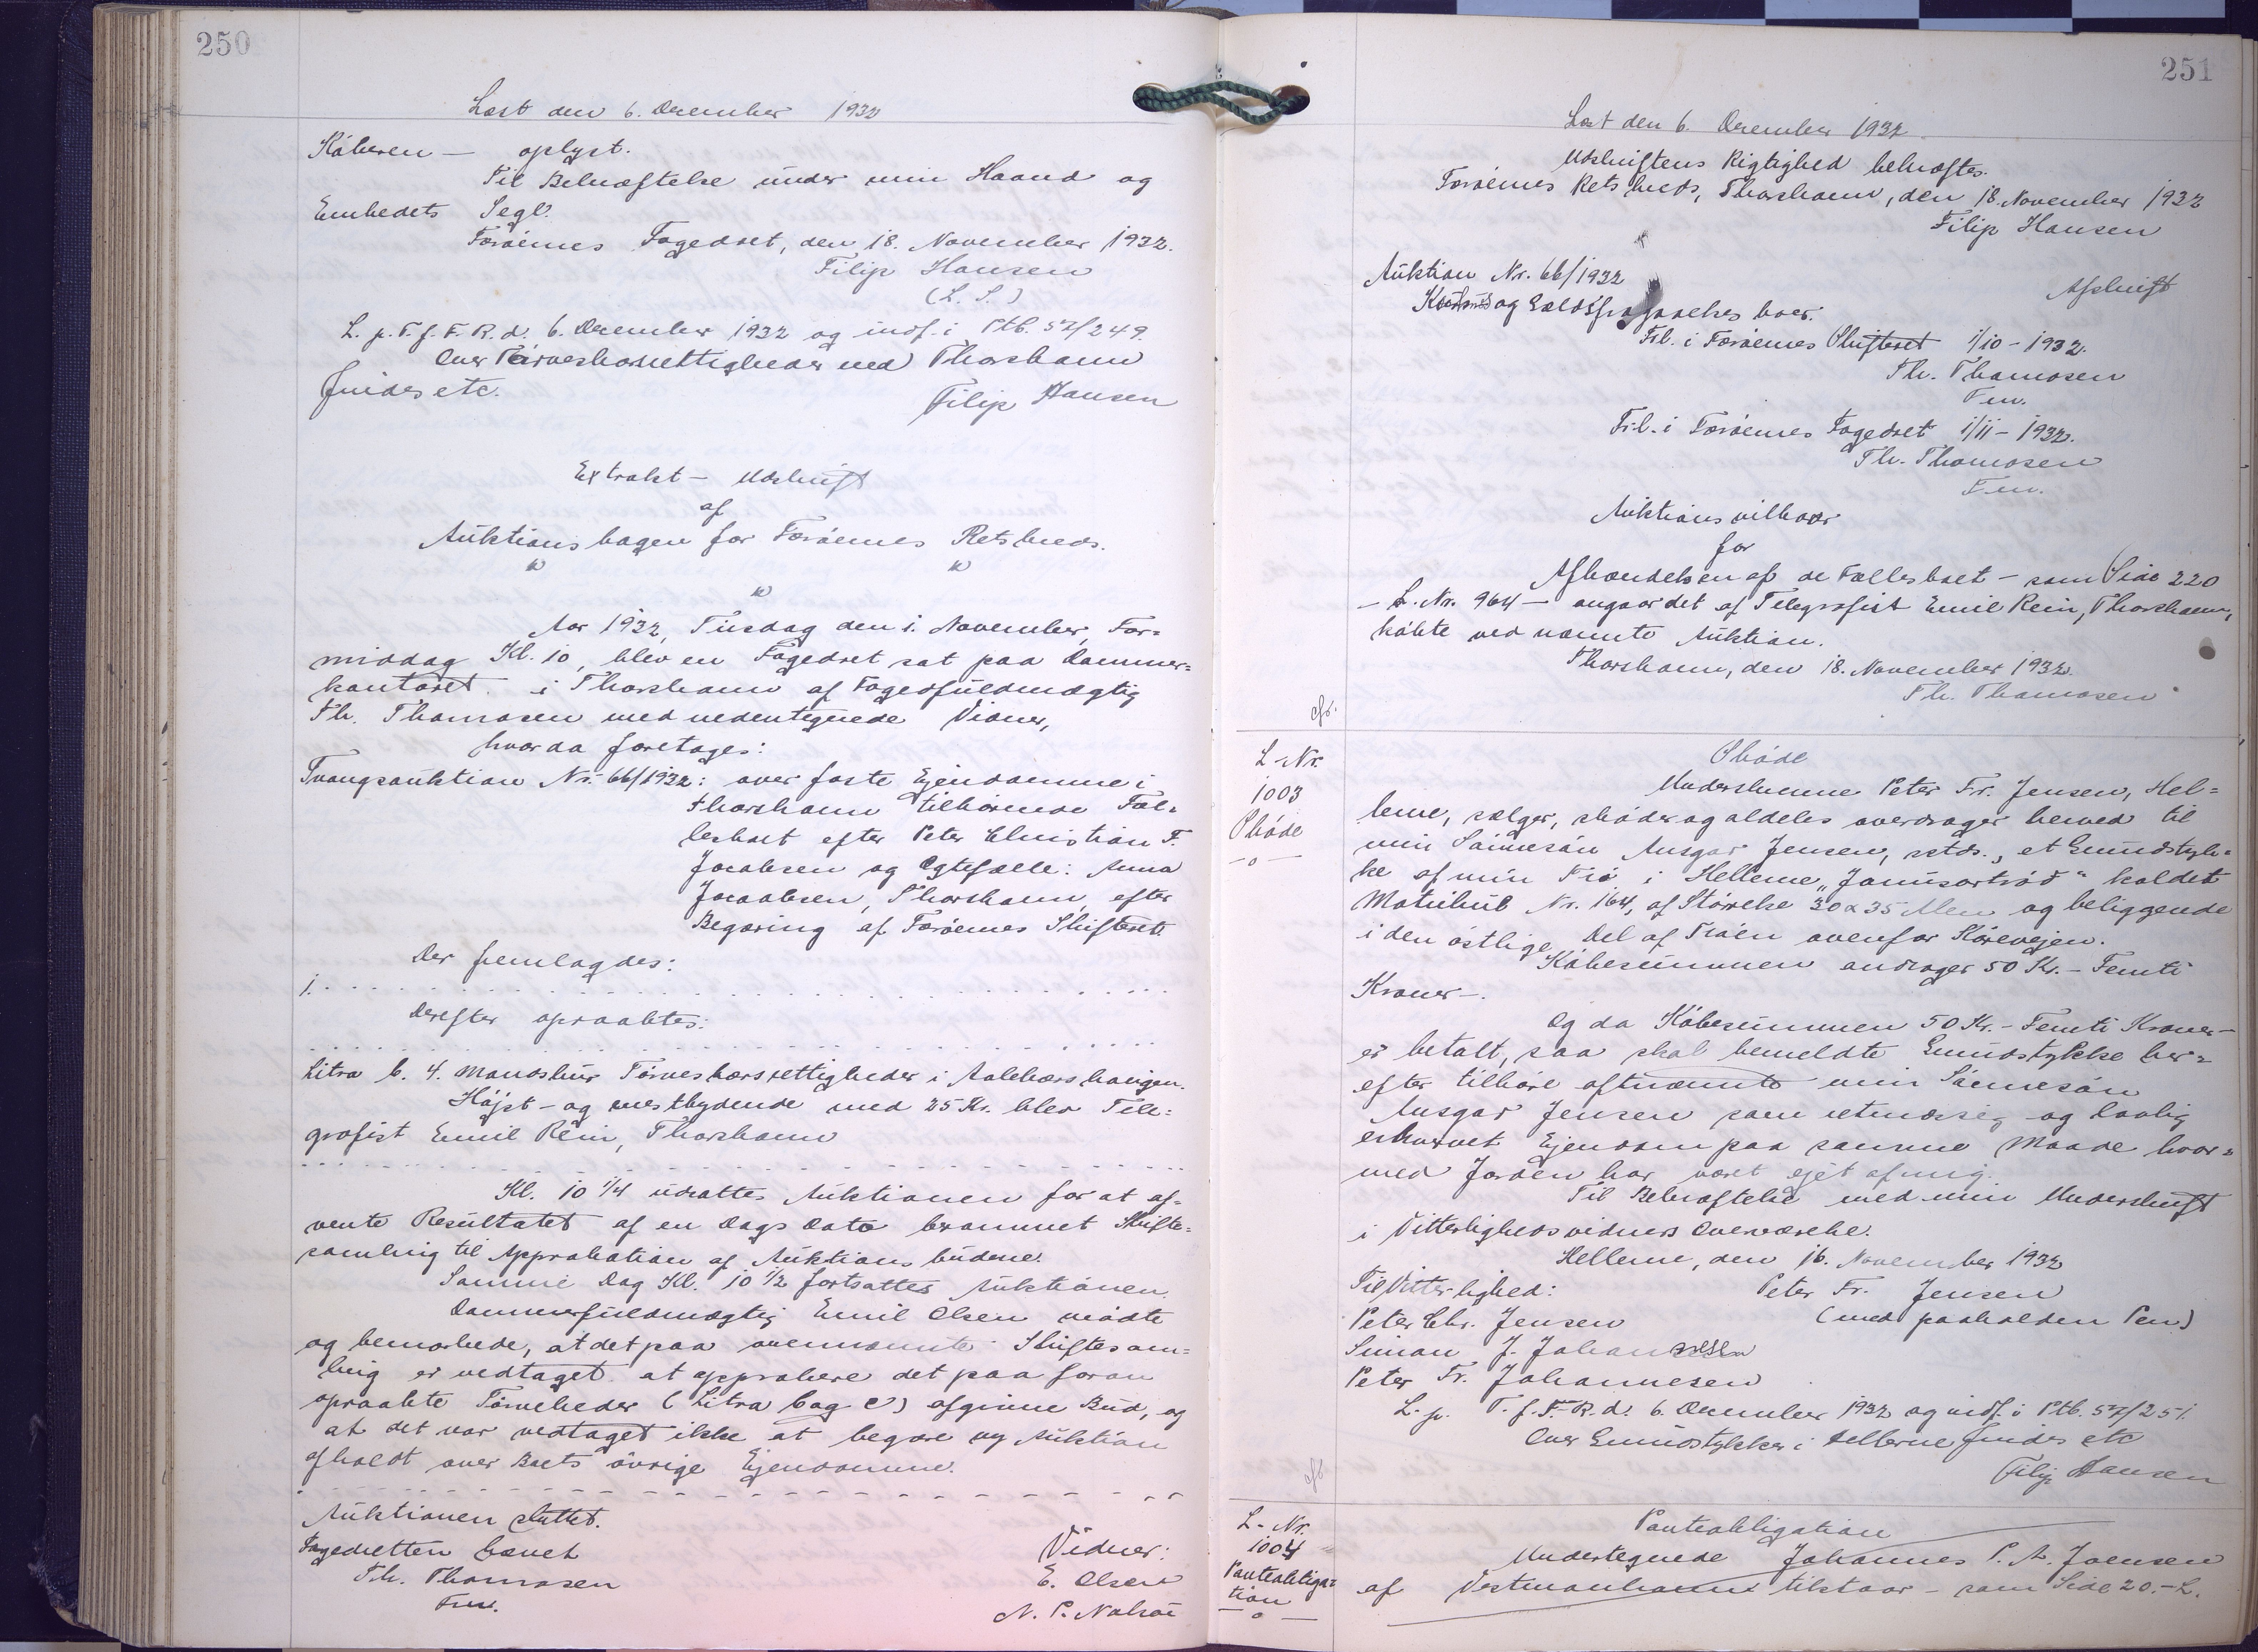 250
Læst den 6. December 1932
Köberen — oplyst.
Til Bekræftelse under min Haand og
Embedets Segl.
Færöernes Fogedret, den 18. November 1932.
Filip Hansen
(L. S.)
L. p. T. f. F. R. d. 6. December 1932 og indf. i Ptb. 57/249.
Over Törveskærsrettigheder ved Thorshavn
findes etc.
Filip Hansen
Extrakt - Udskrift
af
Auktionsbogen for Færöernes Retskreds.
Aar 1932, Tirsdag den 1. November, For=
middag Kl. 10, blev en Fogedret sat paa Dommer=
kontoret i Thorshavn af Fogedfuldmægtig
Th. Thomasen med undertegnede Vidner,
hvorda foretages:
Tvangsauktion Nr. 66/1932: over faste Ejendomme i
Thorshavn tilhörende Fæl=
lesboet efter Peter Christian F.
Jacobsen og Ægtefælle: Anna
Jacobsen, Thorshavn, efter
Begæring af Færöernes Skifteret.
Der fremlagdes:
1. . . . . . . . . . . . . . .
Derefter opraabtes:
. . . . . . . . . . . . . . .
Litra C. 4. Mandshur Törveskærsrettigheder i
Höjst- og mestbydende med 25 Kr. blev Tele=
grafist Emil Rein, Thorshavn
- - - - - - - - - - - - - - -
Kl. 10 1/4 udsattes Auktionen for at af=
vente Resultatet af en Dags Dato berammet Skifte=
samling til Approbation af Auktionsbudene.
Samme Dag Kl. 10 1/2 fortsattes Auktionen.
Dommerfuldmægtig Emil Olsen mödte
og bemærkede, at det paa ovennævnte Skiftesam=
ling er vedtaget at approbere det paa foran
opraabte Törveheder (Litra C og e) afgivne Bud, og
at det var vedtaget ikke at begære ny Auktion
afholdt over Boets övrige Ejendomme.
- - - - - - - - - - - - - - -
Auktionen sluttet.
Fogedretten hævet
Vidner:
Th. Thomasen
E. Olsen
Fm.
N. P. Nolsöe
251
Læst den 6. December 1932.
Udskriftens Rigtighed bekræftes.
Færöernes Retskreds, Thorshavn, den 18. November 1932
Filip Hansen
Auktion Nr. 66/1932
Afskrift
og Gældsfragaaelses boer.
Frl. i Færöernes Skifteret 1/10 - 1932.
Th. Thomasen
Fm.
Frl. i Færöernes Fogedret 1/11 - 1932.
Th. Thomasen
Fm.
Auktionsvilkaar
for
Afhændelsen af de Fællesboet - som Side 220
- L. Nr. 964 - angaar det af Telegrafist Emil Rein, Thorshavn,
köbte ved nævnte Auktion.
Thorshavn, den 18. November 1932.
Th. Thomasen
cfr.
L-Nr.
1003
Sköde
—o—
Sköde
Underskrevne Peter Fr. Jensen, Hel=
lerne, sælger, sköder og aldeles overdrager herved til
min Sönnesön Ansgar Jensen, sstds., et Grundstyk=
ke af min Trö i Hellerne "Janusartröd" kaldet
Matrikul Nr. 164, af Störrelse 30 x 35 Alen og beliggende
i den östlige Del af Tröen ovenfor Körevejen.
Köbesummen andrager 50 Kr. - Femti
Kroner -.
Og da Köbesummen 50 Kr. - Femti Kroner -
er betalt, saa skal bemeldte Grundstykke her=
efter tilhöre oftnævnte min Sönnesön
Ansgar Jensen som retmæssig og lovlig
erhvervet Ejendom paa samme Maade hvor=
med Jorden har været ejet af mig.
Til Bekræftelse med min Underskrift
i Vitterlighedsvidners Overværelse.
Hellerne, den 16. November 1932
Til Vitterlighed:
Peter Fr. Jensen
Peter Chr. Jensen
(med paaholden Pen)
Simon J. Johannesen
Peter Fr. Johannesen
L. p. T. f. F. R. d. 6. December 1932 og indf. i Ptb. 57/251.
Over Grundstykker i Hellerne findes etc
Filip Hansen
cfr.
L-Nr.
1004
Panteobliga=
tion
—o—
Panteobligation
Undertegnede Johannes P. A. Joensen
af Vestmanhavn tilstaar - som Side 20. - L.